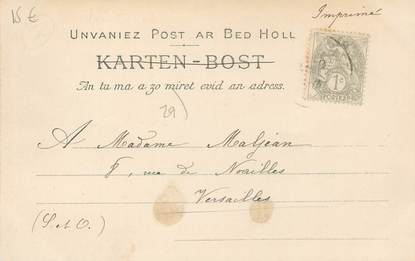 15 €
Imprimé
UNVANIEZ POST AR BED HOLL
KARTEN-BOST
An tu ma a zo miret evid an adress.
1c
POSTES
29)
A Madame Maljean
8, rue de Noailles
Versailles
(S. et O.)